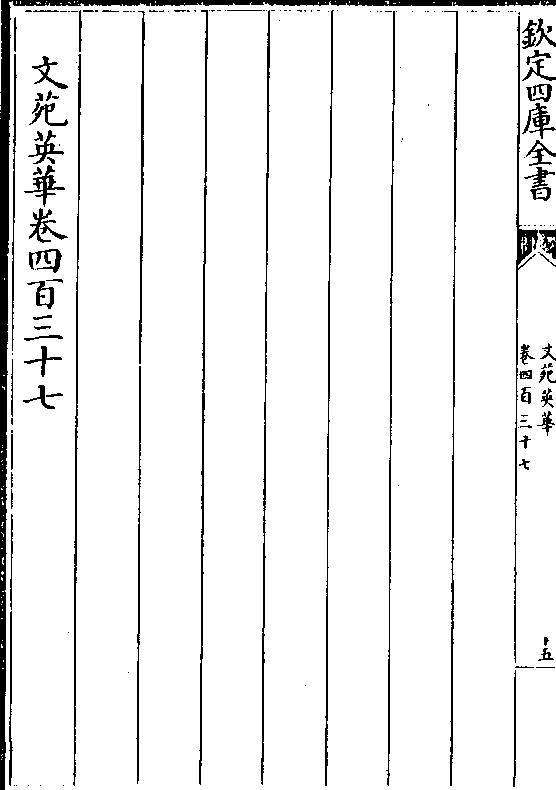 欽定四庫全書
文苑英華
卷四百三十七
十五
文苑英華卷四百三十七